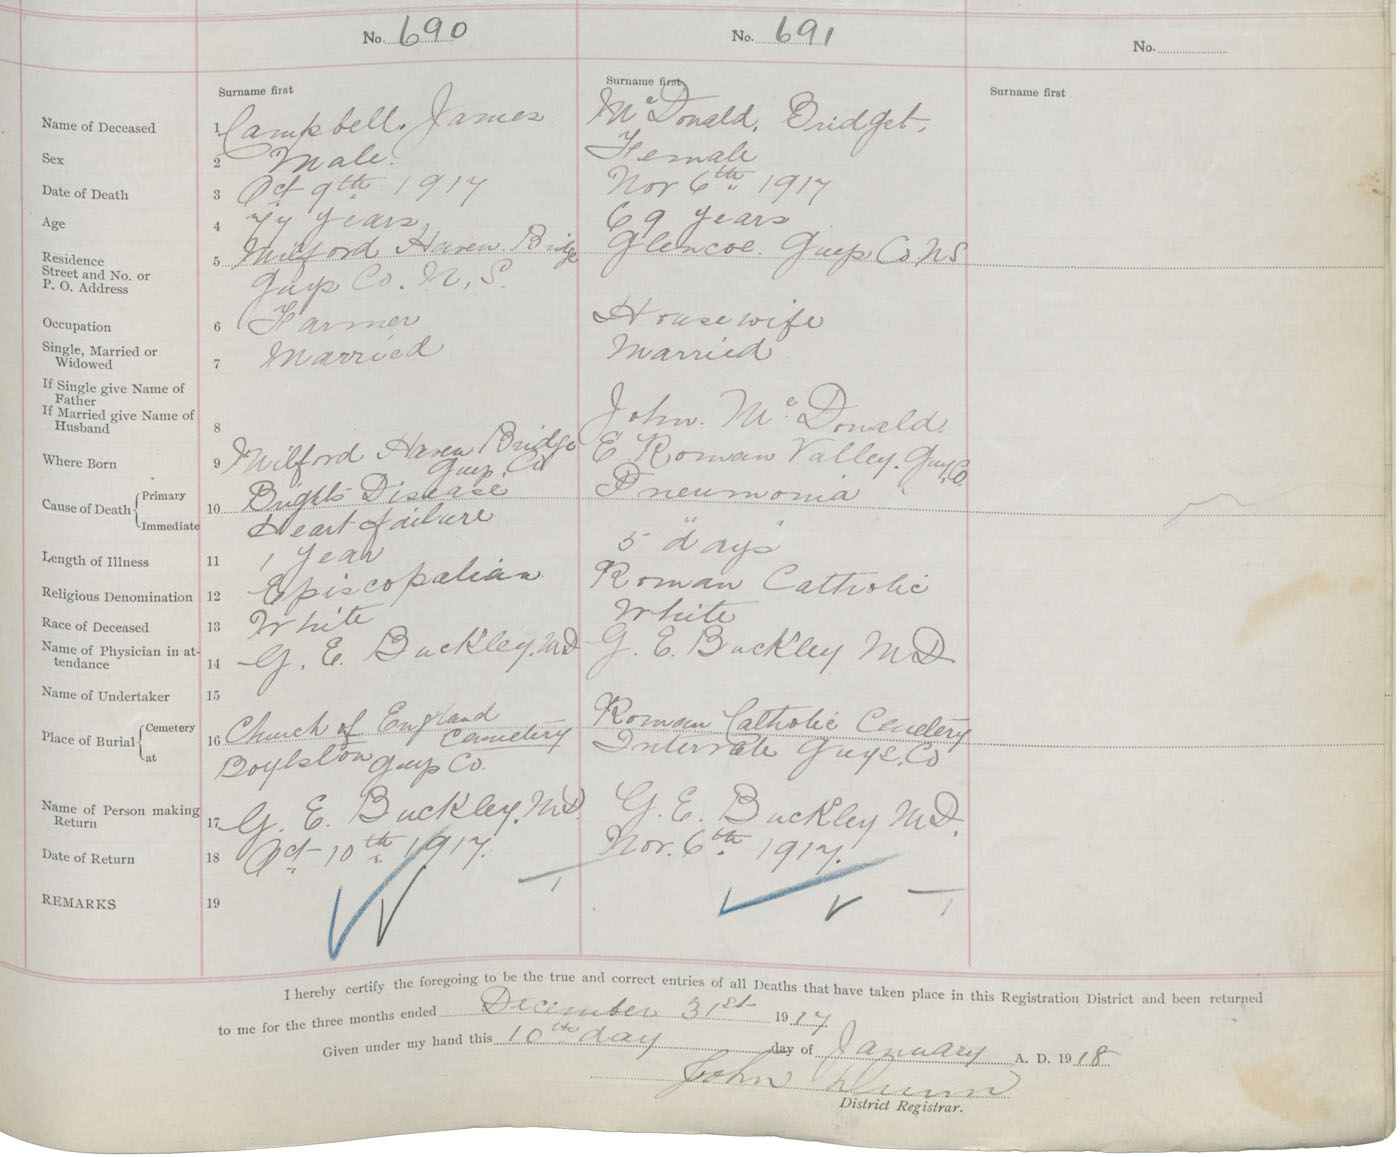 No. 690 No. 691 No.
Surname first Surname first Surname first
Name of Deceased 1 Campbell. James McDonald. Bridget.
Sex 2 Male. Female
Date of Death 3 Oct 9th 1917 Nov 6th 1917
Age 4 77 years 69 years
Residence
Street and No. or
P. O. Address 5 Milford Haven Bridge Glencoe. Guys Co NS
Guys Co. N. S.
Occupation 6 Farmer Housewife
Single, Married or
Widowed 7 Married Married
If Single give Name of
Father
If Married give Name of
Husband 8 John. McDonald.
Where Born 9 Milford Haven Bridge E Roman Valley. Guy. Co.
Guys Co
Cause of Death Primary 10 Brights Disease Pneumonia
Immediate Heart failure " "
Length of Illness 11 1 Year 5 days
Religious Denomination 12 Episcopalian Roman Catholic
Race of Deceased 13 White White
Name of Physician in at-
tendance 14 G. E. Buckley. MD G. E. Buckley MD
Name of Undertaker 15
Place of Burial Cemetery 16 Church of England Cemetery Roman Catholic Cemetery
at Boylston Guys Co. Intervale Guys. Co
Name of Person making
Return 17 G. E. Buckley. MD. G. E. Buckley MD.
Date of Return 18 Oct 10th 1917. Nov. 6th 1917.
REMARKS 19
I hereby certify the foregoing to be the true and correct entries of all Deaths that have taken place in this Registration District and been returned
to me for the three months ended December 31st 1917
Given under my hand this 10th day day of January A. D. 1918
John Dunn
District Registrar.